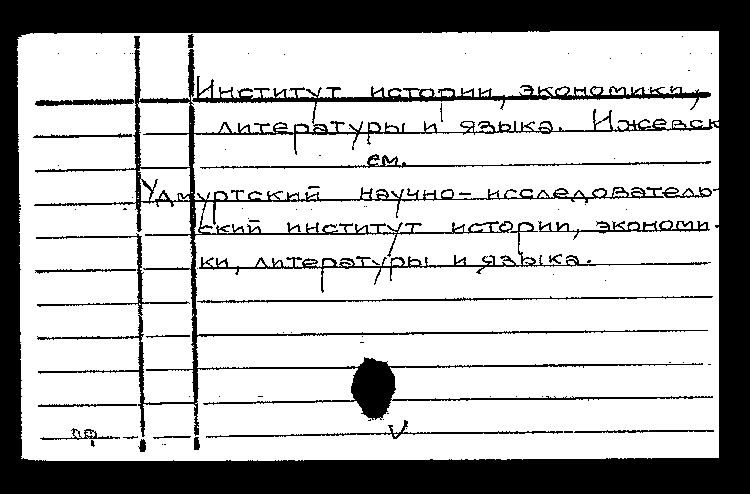 Институт истории, экономики,
литературы и языка. Ижевск
см.
Удмуртский научно-исследователь-
ский институт истории, экономи-
ки, литературы и языка.